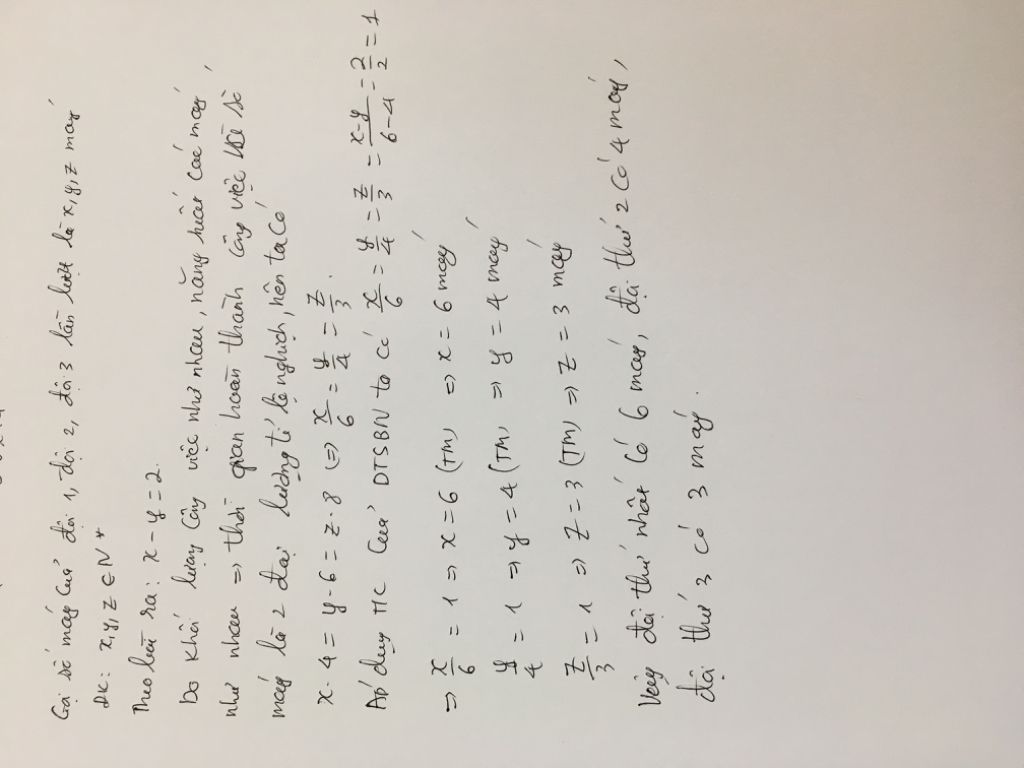 Gọi số máy của đội 1, đội 2, đội 3 lần lượt là x, y, z máy
ĐK: x, y, z ∈ N*
Theo bài ra: x - y = 2.
Do khối lượng công việc như nhau, năng suất các máy
như nhau => thời gian hoàn thành công việc và số
máy là 2 đại lượng tỉ lệ nghịch, nên ta có
x · 4 = y · 6 = z · 8 (=) x/6 = y/4 = z/3.
Áp dụng TC của DTSBN ta có x/6 = y/4 = z/3 = x-y/6-4 = 2/2 = 1
=> x/6 = 1 => x = 6 (TM) => x = 6 máy
y/4 = 1 => y = 4 (TM) => y = 4 máy
z/3 = 1 => z = 3 (TM) => z = 3 máy
Vậy đội thứ nhất có 6 máy, đội thứ 2 có 4 máy,
đội thứ 3 có 3 máy.